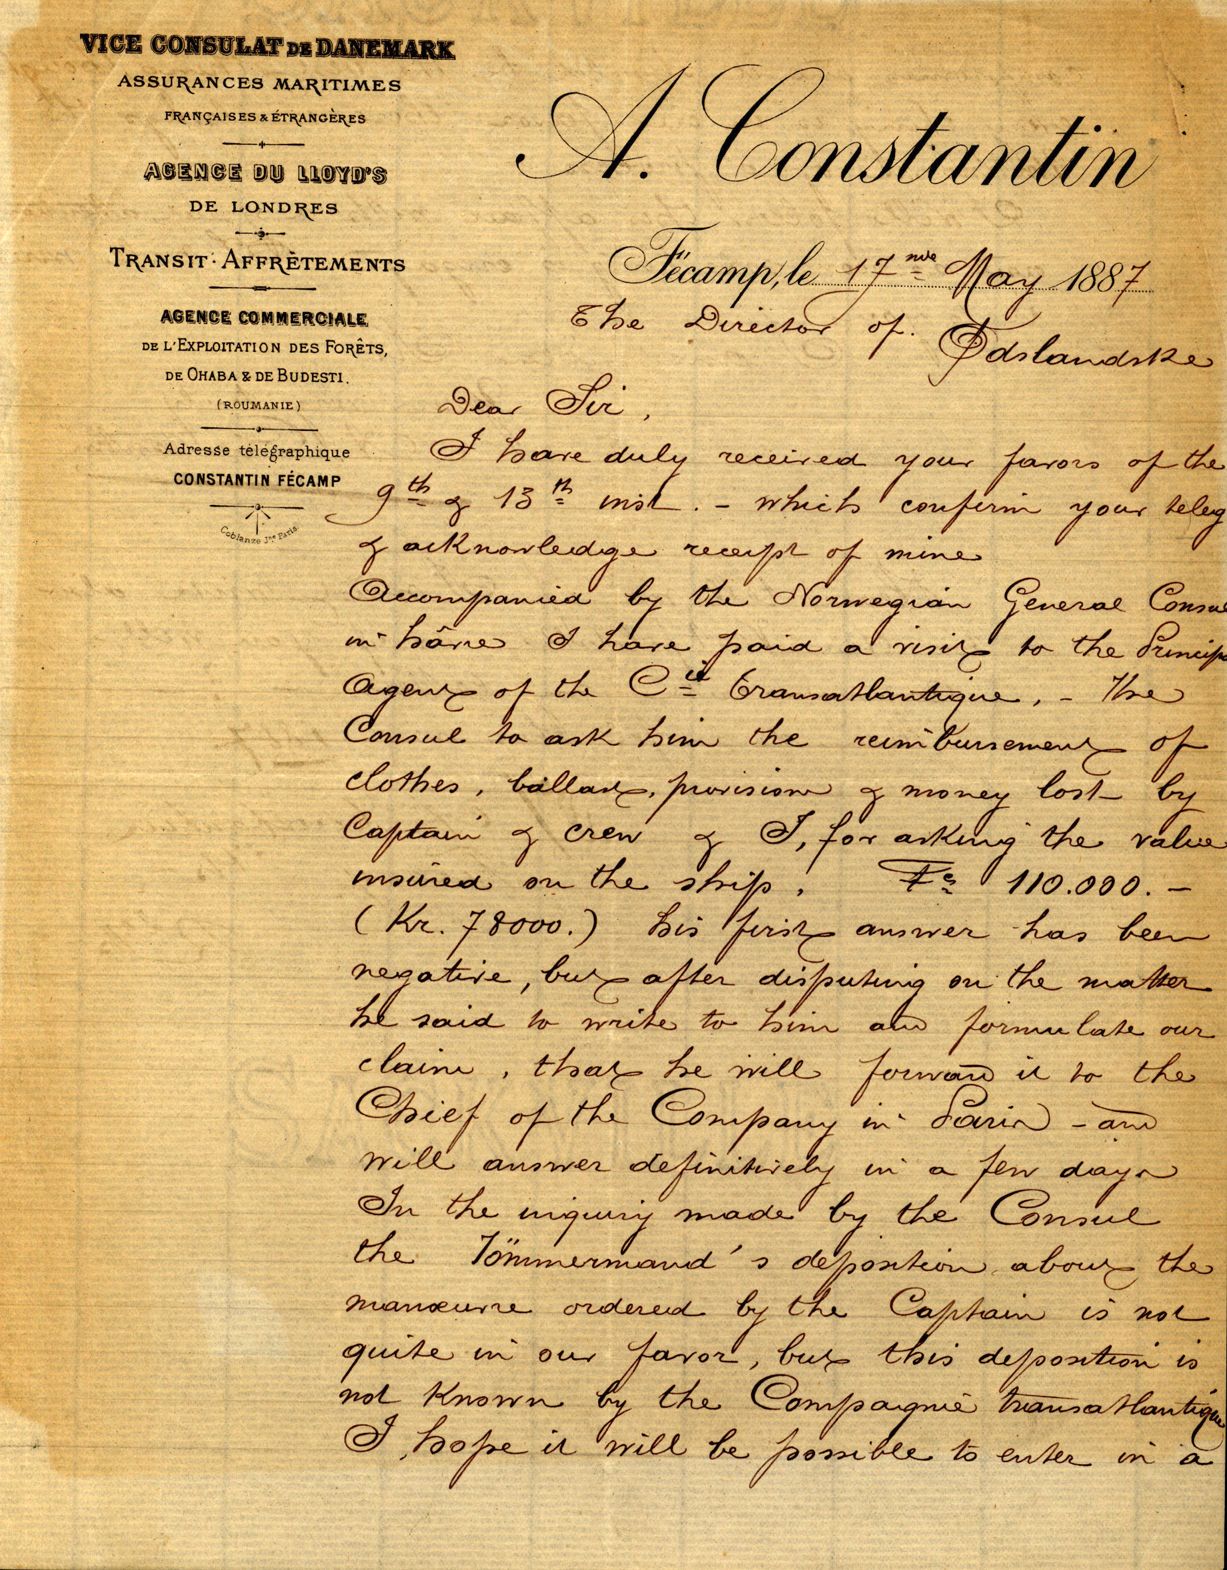 VICE CONSULAT DE DANEMARK
ASSURANCES MARITIMES
FRANÇAISES & ÉTRANGÈRES
AGENCE DU LLOYD'S
DE LONDRES
TRANSIT · AFFRÈTEMENTS
AGENCE COMMERCIALE
DE L'EXPLOITATION DES FORÊTS,
DE OHABA & DE BUDESTI.
(ROUMANIE)
Adresse télégraphique
CONSTANTIN FÉCAMP
Coblanze Jne Paris
A. Constantin
Fécamp, le 17 May 1887
The Director of
Dear Sir,
I have duly received your favors of the
9th & 13th inst. - which confirm your teleg
& acknowledge receipt of mine
Accompanied by the Norwegian General Consu
in hâvre I have paid a visit to the Princip
Agent of the Cie transatlantique. - The
Consul to ask him the reimbursement of
clothes, ballast, provision & money lost by
Captain & crew & I, for asking the value
insured on the ship. Fcs 110.000. -
(Kr. 78000.) his first answer has been
negative, but after disputing on the matter
he said to write to him and formulate our
claim, that he will forward it to the
Chief of the Company in Paris - and
will answer definitively in a few days
In the inquiry made by the Consul
the Tömmermand's deposition about the
manœuvre ordered by the Captain is not
quite in our favor, but this deposition is
not Known by the Compagnie transatlantique
I hope it will be possible to enter in a